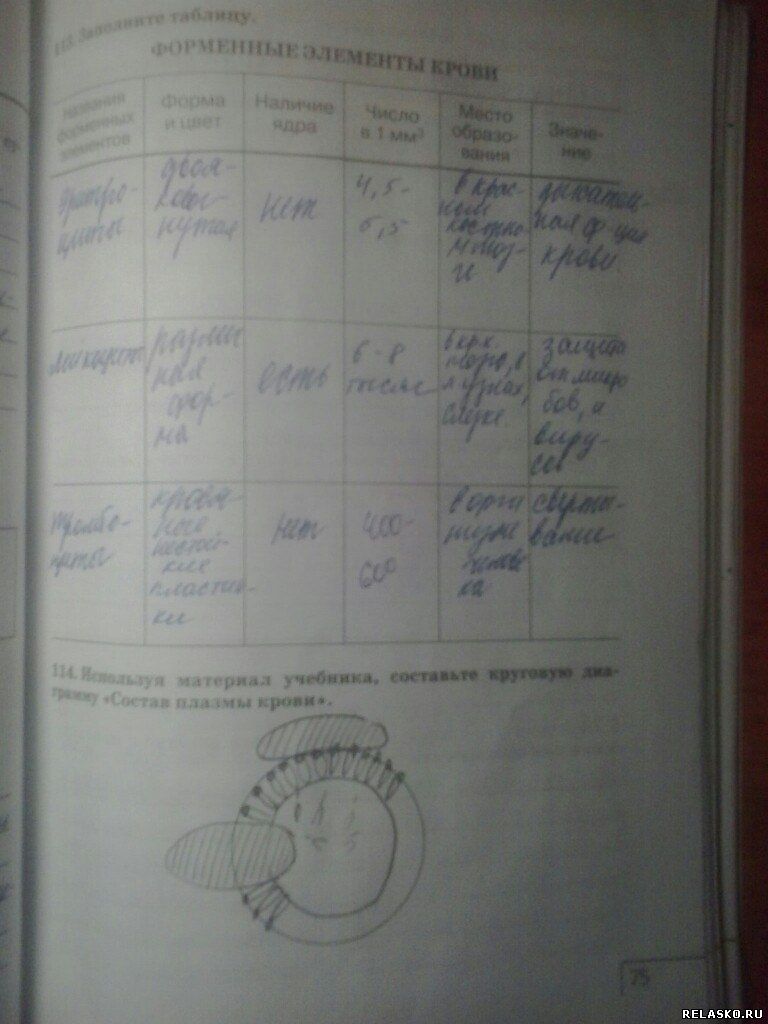 113. Заполните таблицу.
ФОРМЕННЫЕ ЭЛЕМЕНТЫ КРОВИ
Названия форменных элементов
Форма и цвет
Наличие ядра
Число в 1 мм³
Место образо-
вания
Значе-
ние
эритро-
циты
двоя-
ковог-
нутая
нет
4,5-
5,5
в крас-
ном
костно
м моз-
ге
дыхатель-
ная ф-ция
крови.
лейкоциты
различ
ная
фор-
ма
есть
6-8
тысяч
в кр.к.
мозге, в
л.узлах,
защита
от микро
бов, и
виру-
сов
тромбо-
циты
кровя-
ного
пластин-
ки
нет
400-
600
в орга
низме
челове
ка
сверты-
вание
114. Используя материал учебника, составьте круговую диа-
грамму «Состав плазмы крови».
75
RELASKO.RU